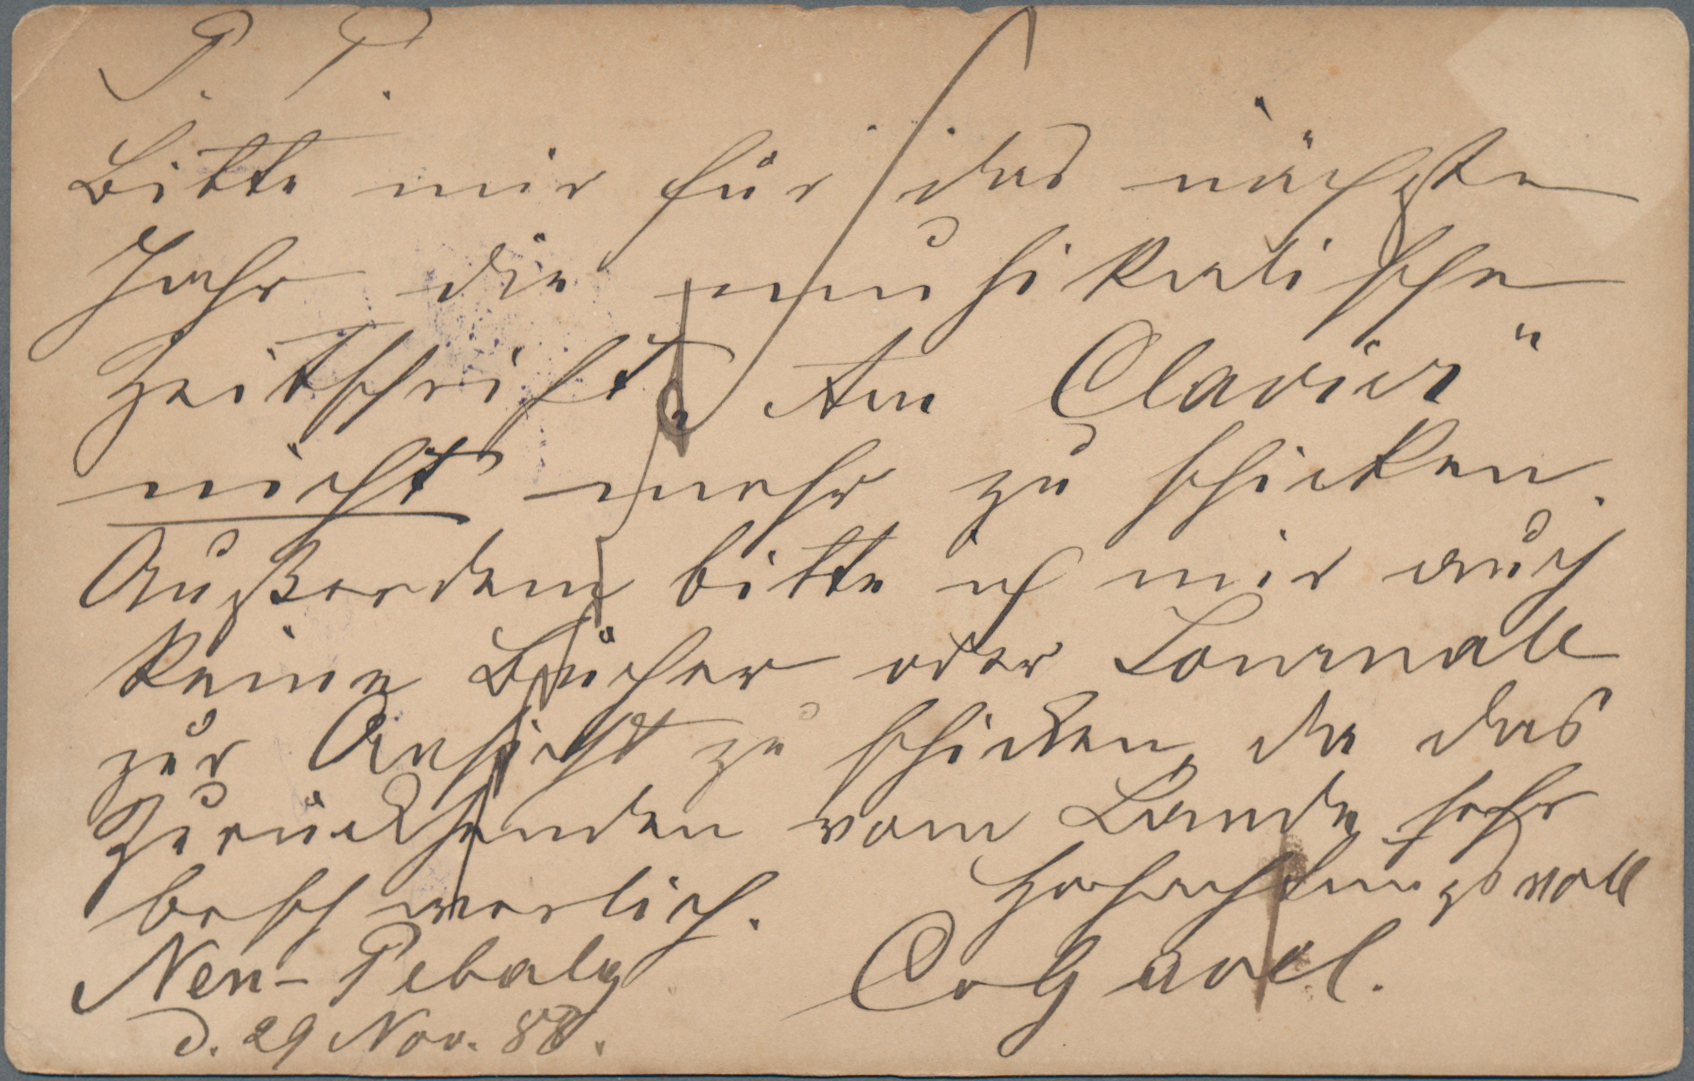 P. P.
Bitte mir für das nächste
Jahr die musikalische
Zeitschrift „Am Clavier“
nicht mehr zu schicken.
Außerdem bitte ich mir auch
keine Bücher oder Journale
zur Ansicht zu schicken, da das
Zurücksenden vom Lande sehr
beschwerlich. Hochachtungsvoll
Neu-Pebalg
d. 29 Nov. 88.